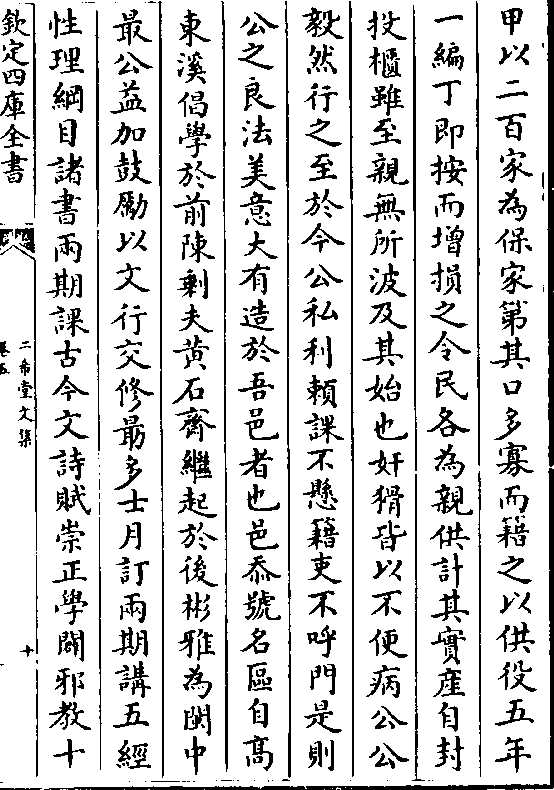 甲以二百家為保家第其口多寡而籍之以供役五年
一編丁即按而増損之令民各為親供計其實産自封
投櫃雖至親無所波及其始也奸猾皆以不便病公公
毅然行之至於今公私利頼課不懸籍吏不呼門是則
公之良法美意大有造於吾邑者也邑忝號名區自髙
東溪倡學於前陳剰夫黄石齋繼起於後彬雅為閩中
最公益加鼓勵以文行交修最多士月訂兩期講五經
性理綱目諸書兩期課古今文詩賦崇正學闢邪教十
欽定四庫全書
二希堂文集
卷五
十